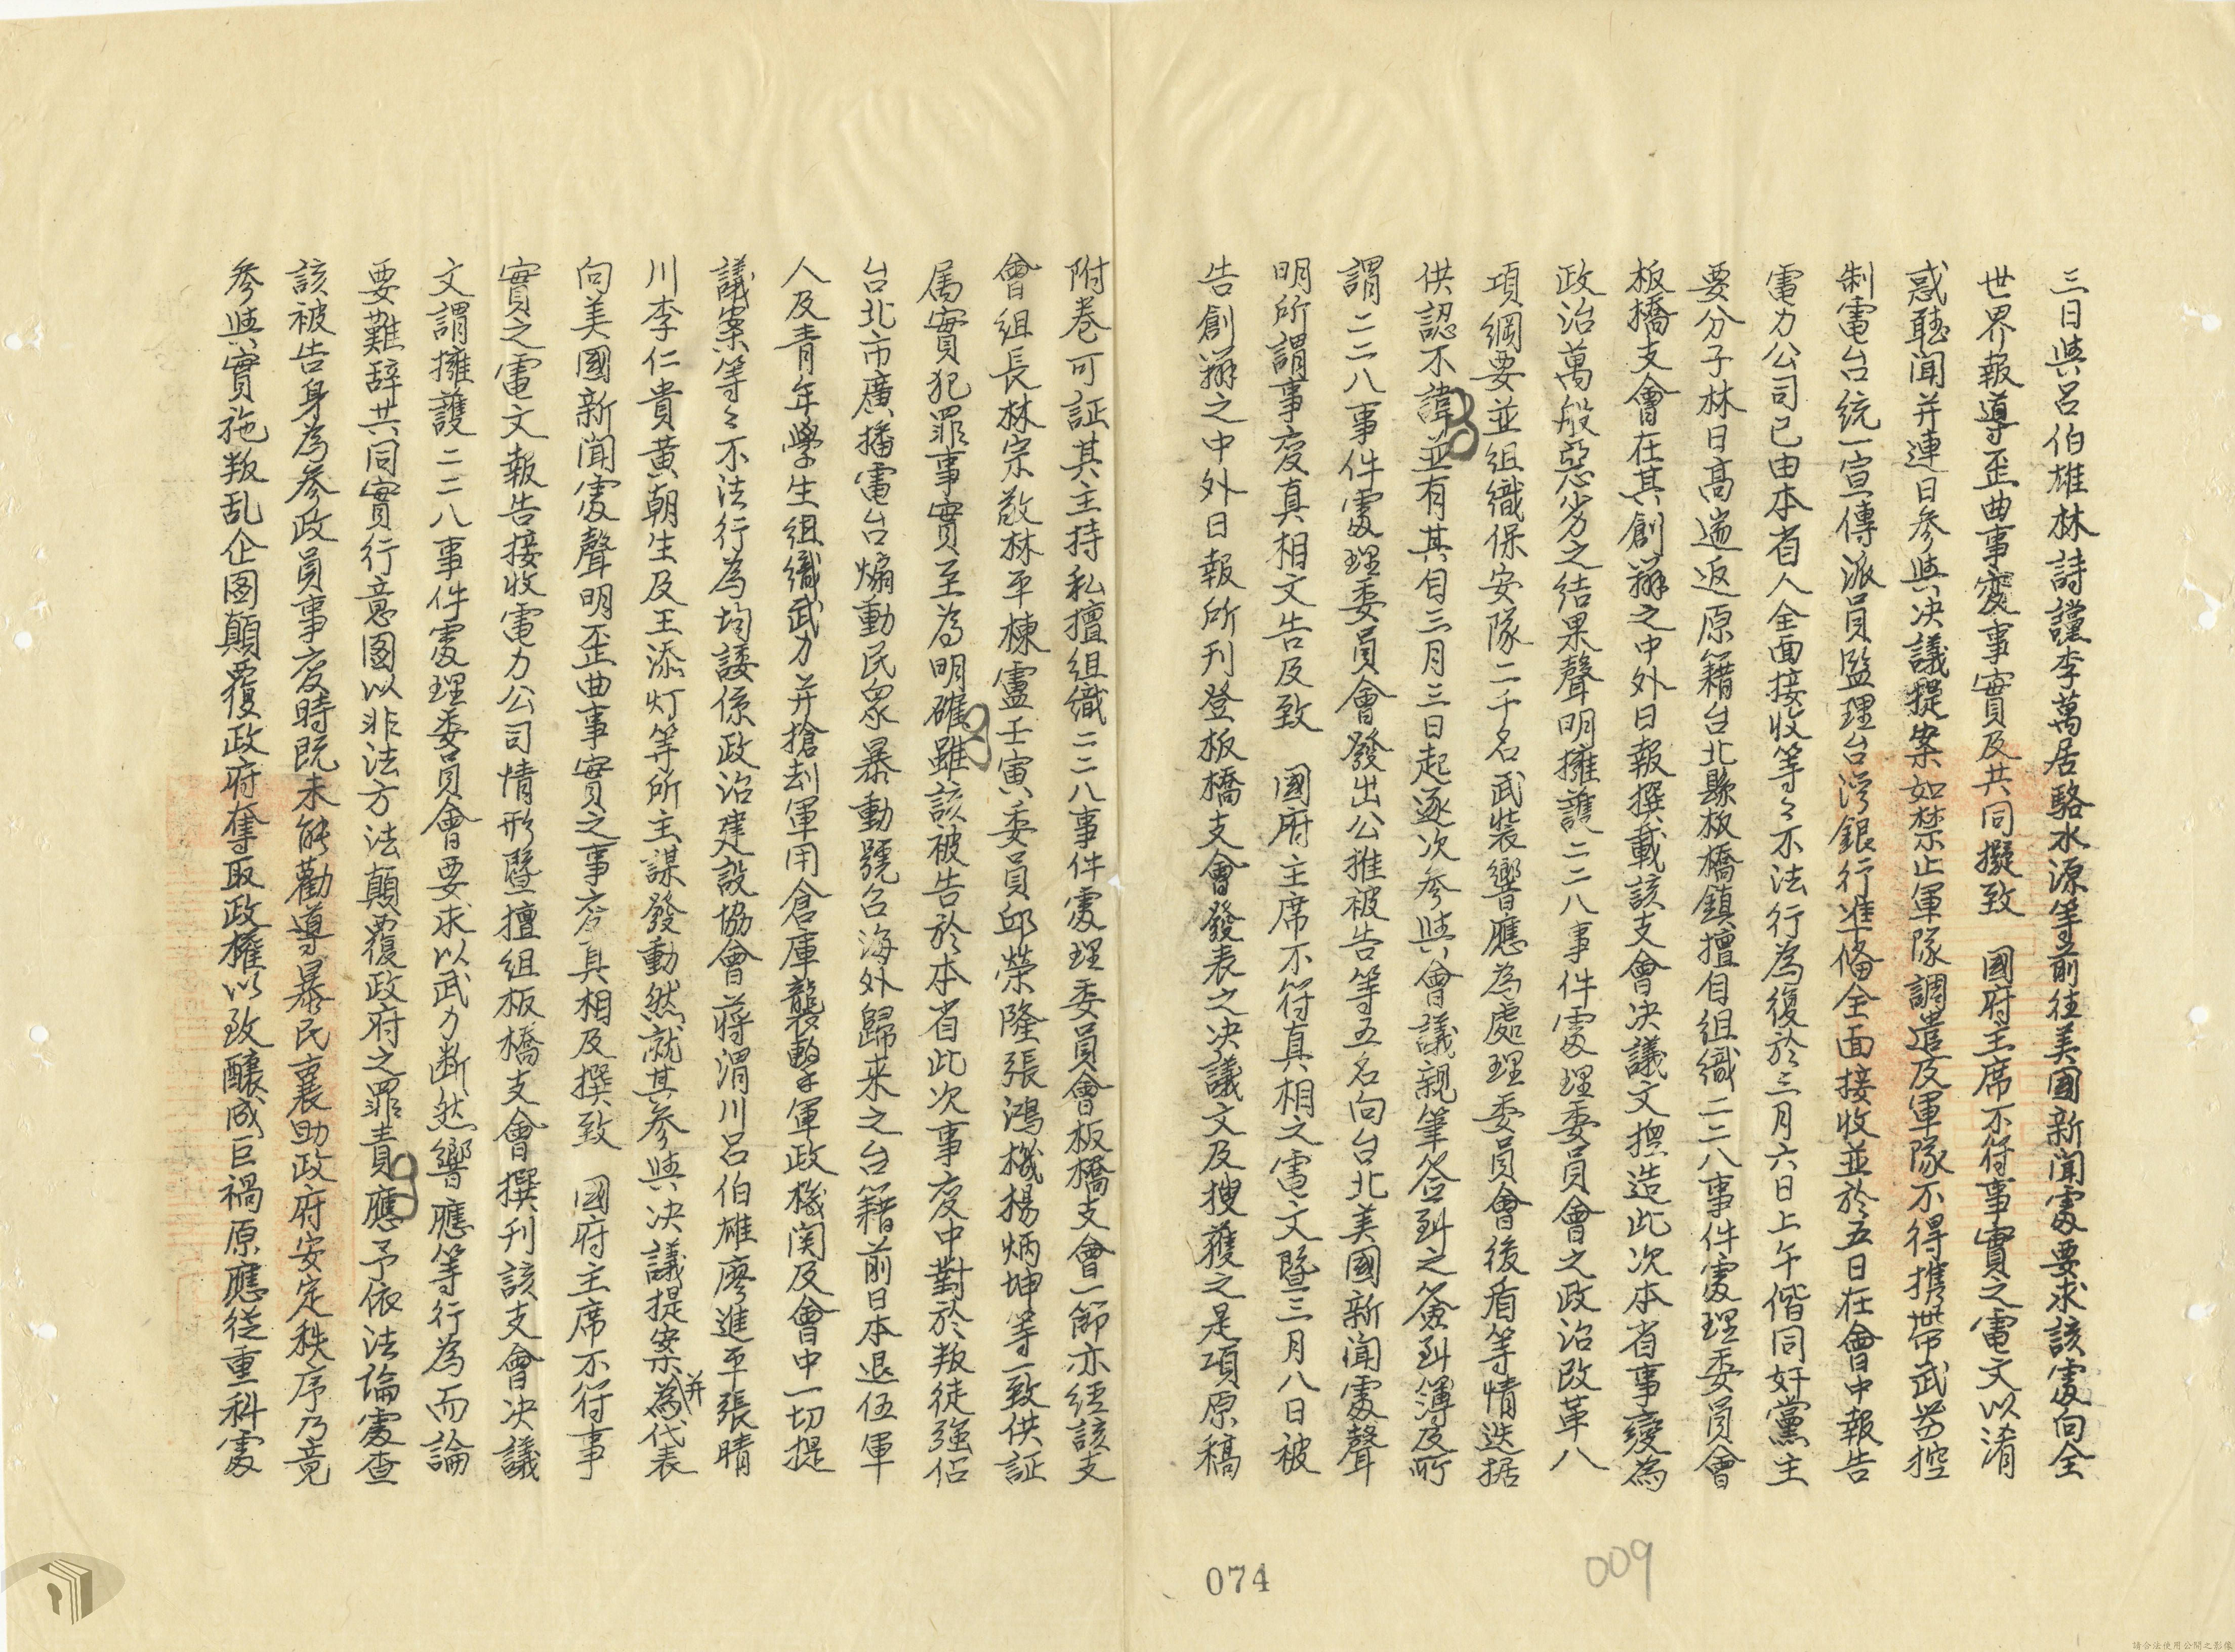 三日與呂伯雄林詩謹李萬居駱水源等前往美國新聞處要求該處向全
世界報導歪曲事變事實及共同擬致　國府主席不符事實之電文以淆
惑聽闻并連日參與決議提案如禁止軍隊調遣及軍隊不得携帶武器控
制電台統一宣傳派員監理台灣銀行準備全面接收並於五日在會中報告
電力公司已由本省人全面接收等々不法行為復於三月六日上午偕同奸黨主
要分子林日高遄返原籍台北縣板橋鎮擅自組織二二八事件處理委員會
板橋支會在其創辦之中外日報撰載該支會决議文摭造此次本省事變為
政治萬般惡劣之结果聲明擁護二二八事件處理委員會之政治改革八
項綱要並組織保安隊二千名武裝響應為處理委員會後盾等情迭据
供認不諱並有其自三月三日起逐次参與會議親筆簽到之簽到簿及所
謂二二八事件處理委員會發出公推被告等五名向台北美國新闻處聲
明所謂事変真相文告及致　國府主席不符真相之電文暨三月八日被
告創辦之中外日報所刊登板橋支會發表之决議文及搜獲之是項原稿
附卷可証其主持私擅組織二二八事件處理委員會板橋支會一節亦经該支
會组長林宗敬林平棟盧壬寅委員邱榮隆張鴻機楊炳坤等一致供証
属實犯罪事實至為明確雖該被告於本省此次事変中對於叛徒强佔
台北市廣播電台煽動民眾暴動號召海外歸来之台籍前日本退伍軍
人及青年學生組織武力并搶刦軍用倉庫襲擊軍政機関及會中一切提
議案等々不法行為均諉係政治建設協會蒋渭川呂伯雄廖進平張晴
川李仁貴黄朝生及王添灯等所主謀發動然就其参與决議提案并為代表
向美國新闻處聲明歪曲事實之事変真相及撰致　國府主席不符事
實之電文報告接收電力公司情形暨擅組板橋支會撰刊該支會决議
文謂擁護二二八事件處理委員會要求以武力断然響應等行為而論
要難辞共同實行意圖以非法方法顛覆政府之罪責應予依法論處查
該被告身為参政員事変時既未能勸導暴民襄助政府安定秩序乃竟
参與實施叛乱企图顛覆政府奪取政權以致釀成巨禍原應從重科處
074
009
請合法使用公開之影像